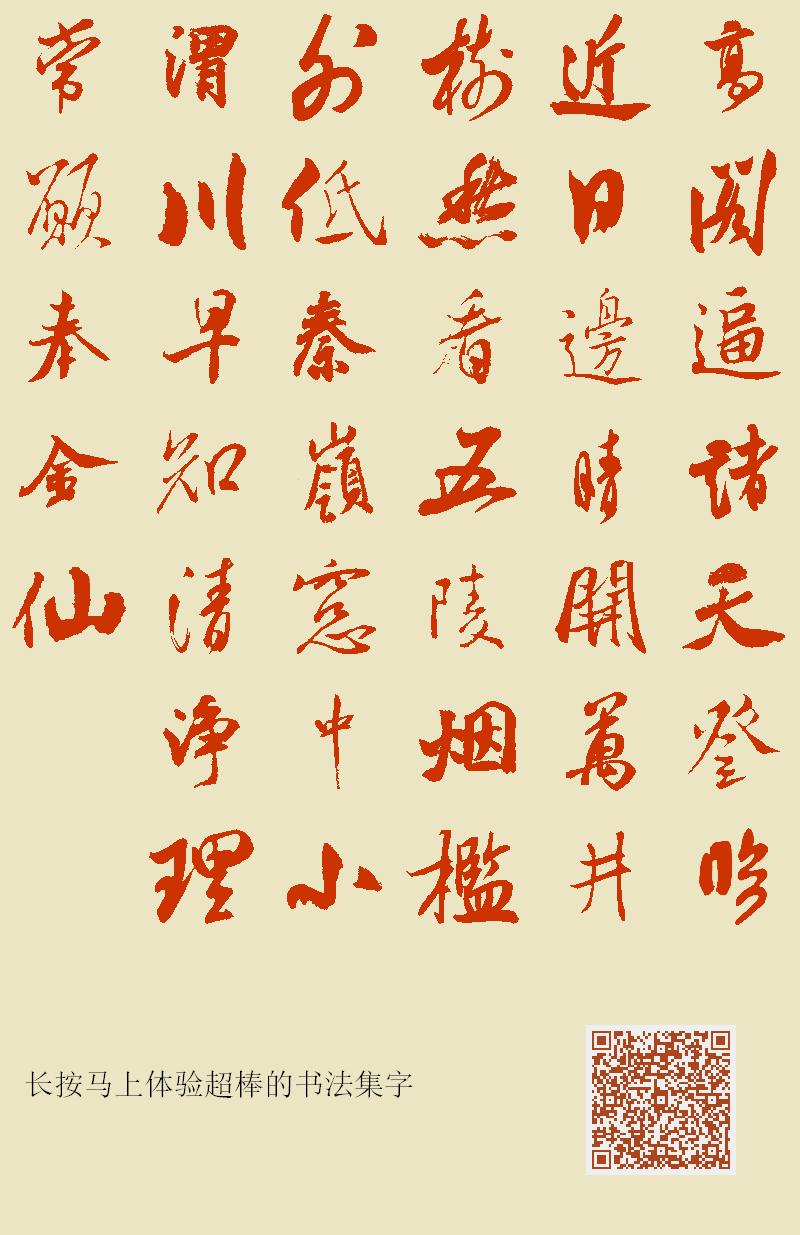 高閣逼諸天登臨
近日邊晴開萬井
樹愁看五陵烟檻
外低秦嶺窓中小
渭川早知清浄理
常願奉金仙
长按马上体验超棒的书法集字